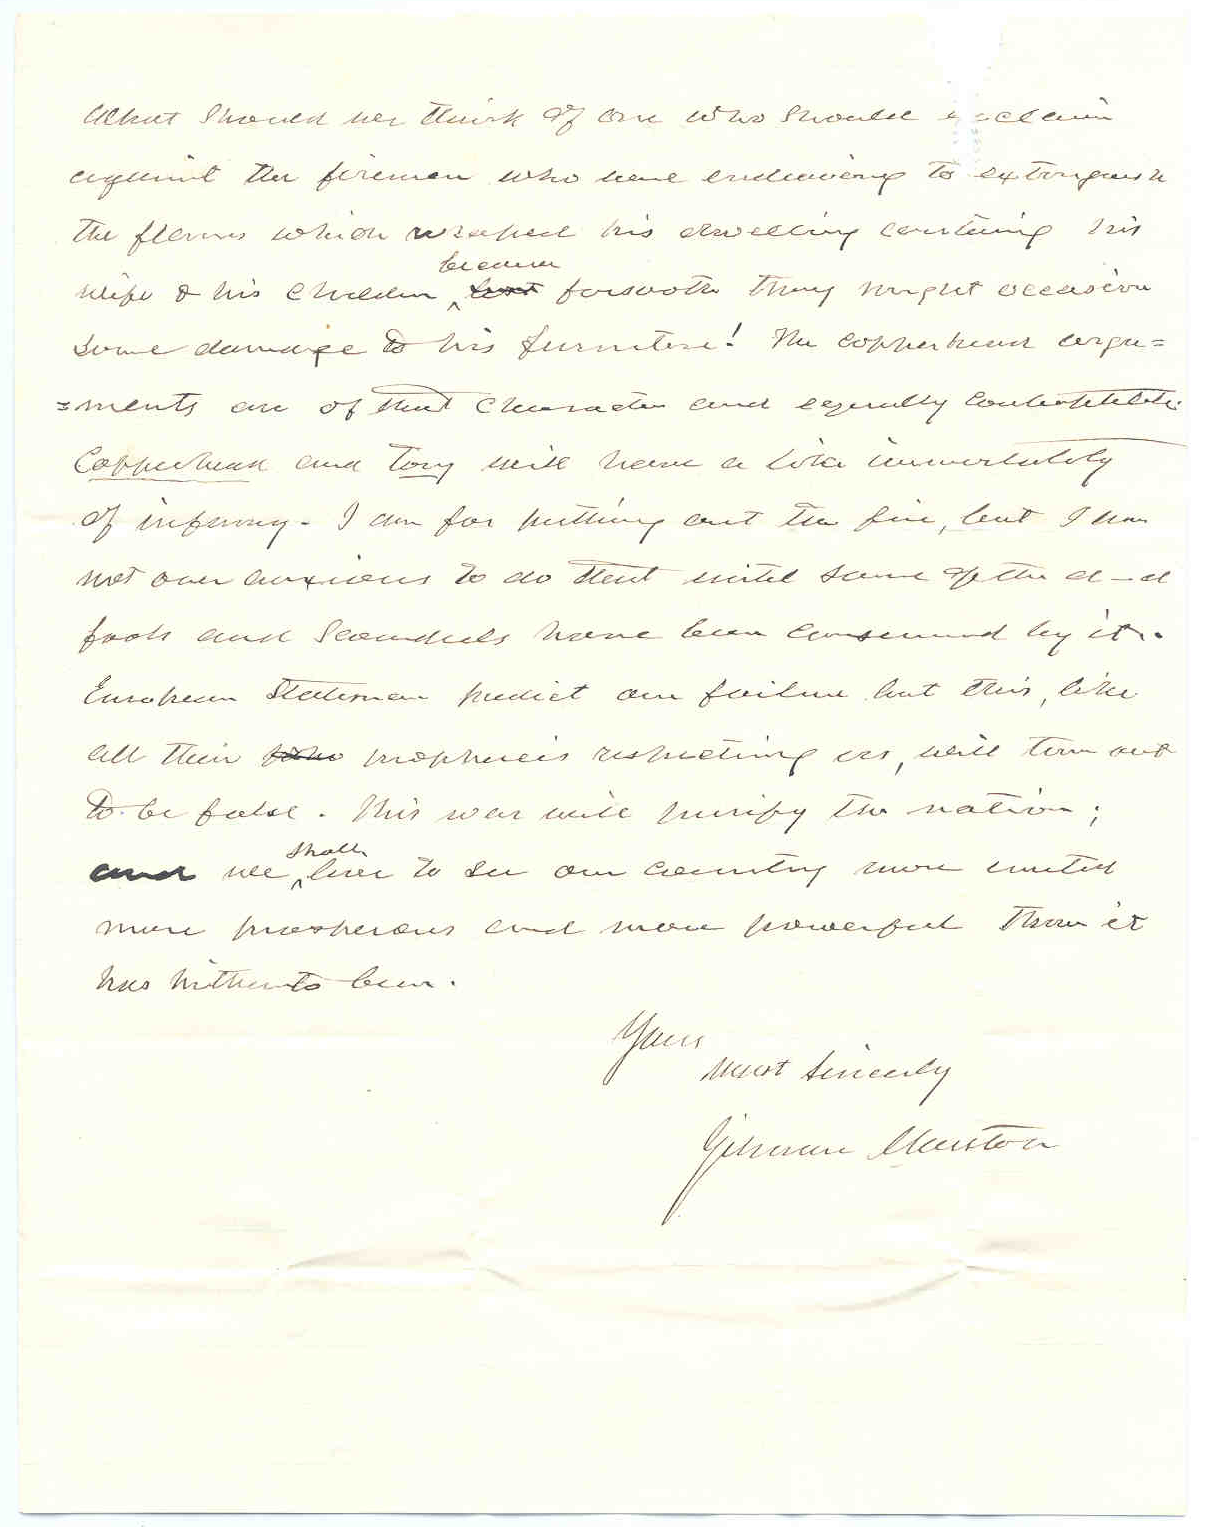 What should we think of one who should exclaim
against the firemen who were endeavoring to extinguish
the flames which wraped his dwelling containing his
wife & his children because lest forsooth they might occasion
some damage to his furniture! The copperhead argu=
=ments are of that character and equally contemptible.
Copperhead and Tory will have a like immortality
of infamy. I am for putting out the fire, but I am
not over anxious to do that until some of the d—d
fools and scoundrels have been consumed by it.
European Statesmen predict our failure but this, like
all their prophecies respecting us, will turn out
to be false. This war will purify the nation;
and we shall live to see our country more united
more prosperous and more powerful than it
has hitherto been.
Yours
most sincerely
Gilman Marston